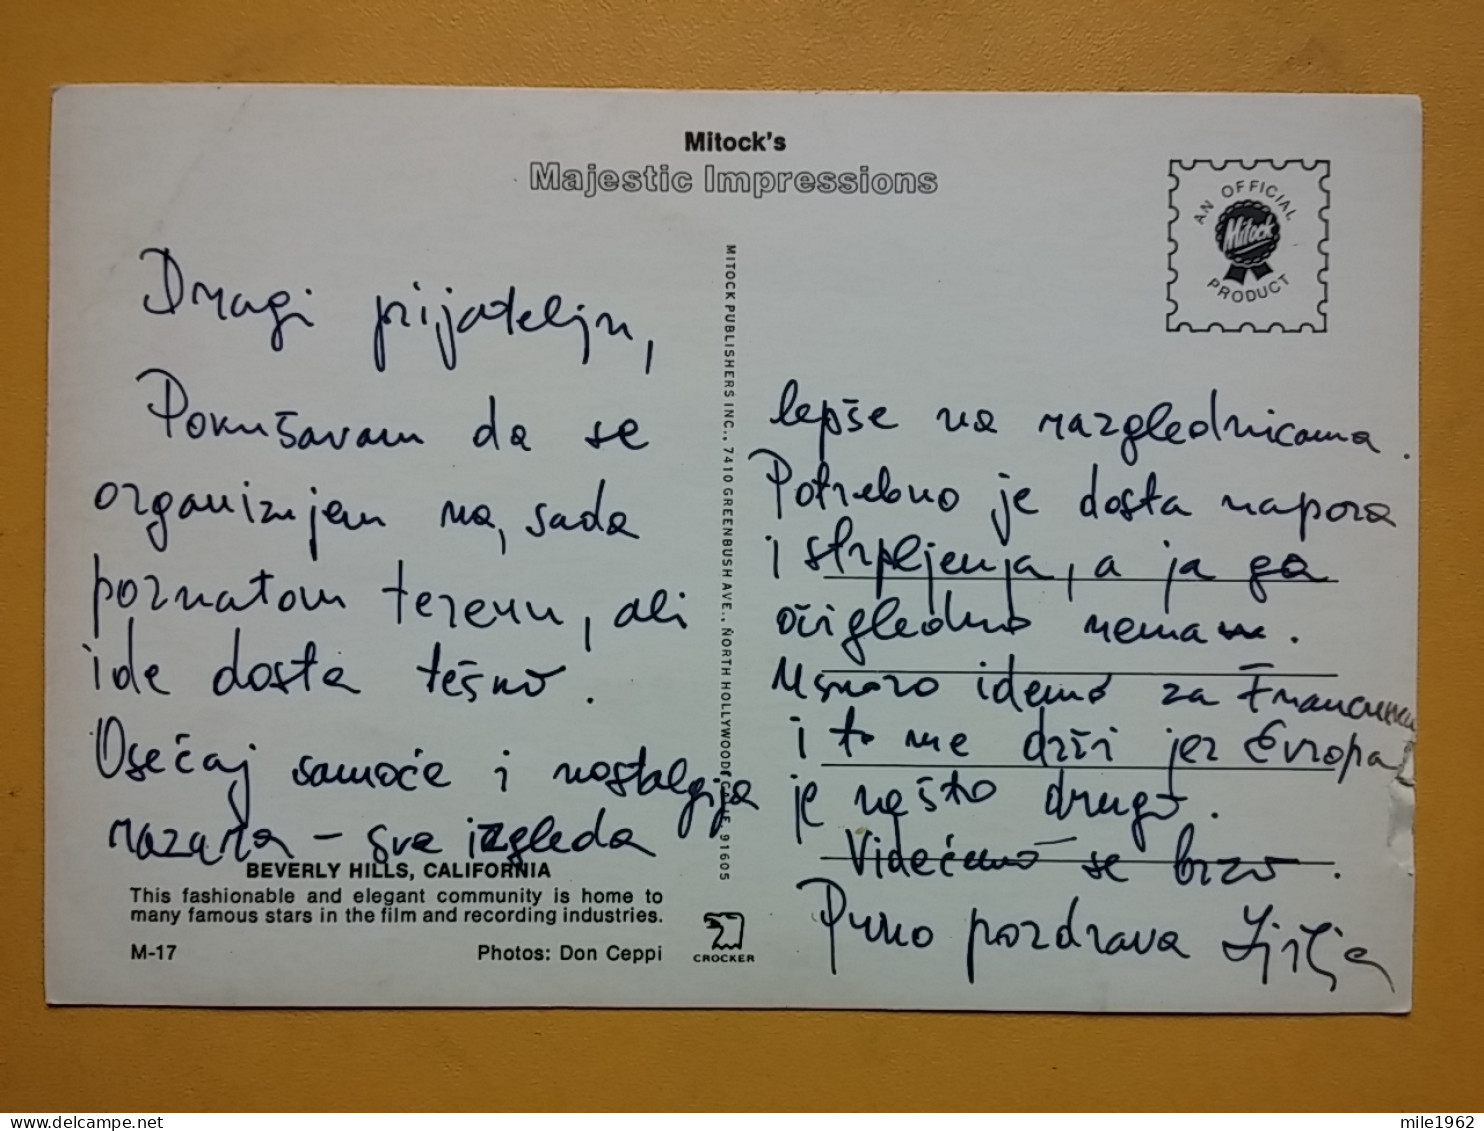 Mitock's
Majestic Impressions
AN OFFICIAL
Mitock
PRODUCT
Dragi prijatelju,
Pokušavam da se
organizujem na, sada
poznatom terenu, ali
ide dosta teško.
Osećaj samoće i nostalgija
razara - sve izgleda
BEVERLY HILLS, CALIFORNIA
This fashionable and elegant community is home to
many famous stars in the film and recording industries.
M-17 Photos: Don Ceppi
MITOCK PUBLISHERS INC., 7410 GREENBUSH AVE., NORTH HOLLYWOOD, CALIF. 91605
CROCKER
lepše na razglednicama.
Potrebno je dosta napora
i strpljenja, a ja ga
očigledno nema.
Uskoro idemo za Francusku
i to me drži jer Evropa
je nešto drugo.
Videćemo se brzo.
Puno pozdrava
mile1962